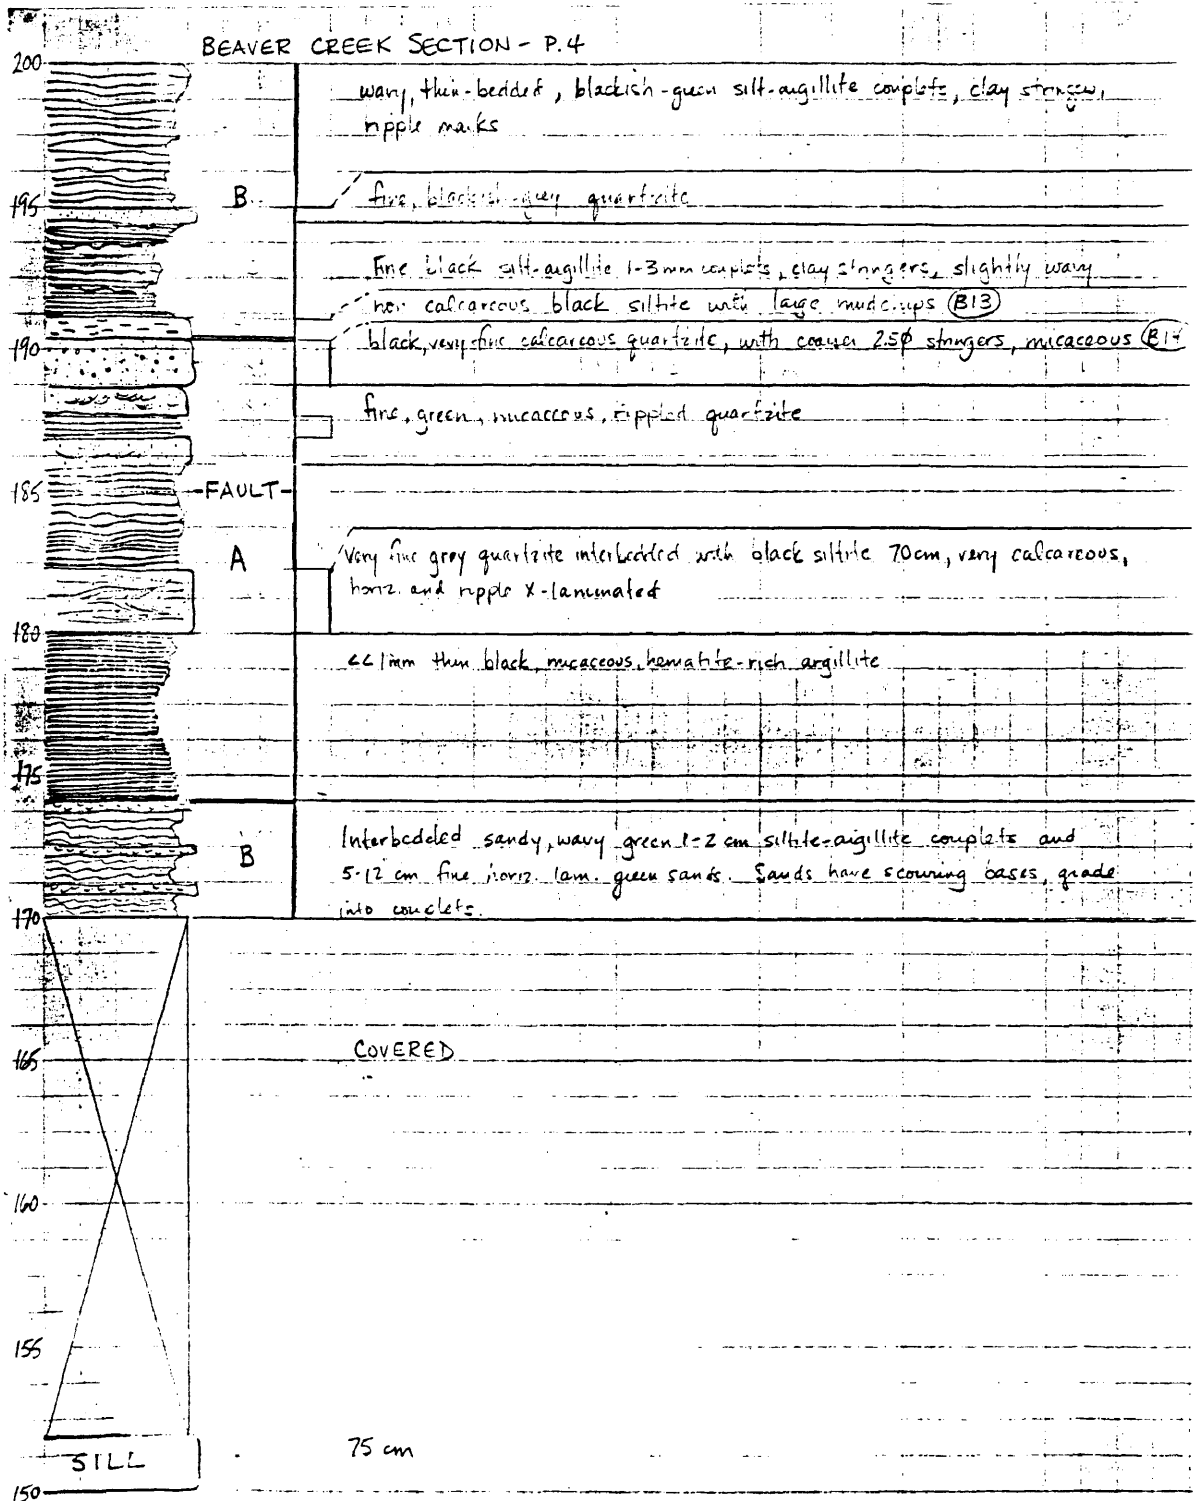 BEAVER CREEK SECTION - P.4
200
wavy, thin-bedded, blackish-green silt-argillite couplets, clay stringers,
ripple marks
195
B
fine, blackish-grey quartzite
Fine black silt-argillite 1-3mm couplets, clay stringers, slightly wavy
non calcareous black siltite with large mudchips (B13)
190
black, very-fine calcareous quartzite, with coarser 2.5ϕ stringers, micaceous
fine, green, micaceous, rippled quartzite
185
-FAULT-
A
Very fine grey quartzite interbedded with black siltite 70cm, very calcareous,
horiz. and ripple X-laminated
180
<<1mm thin black, micaceous, hematite-rich argillite
175
B
Interbedded sandy, wavy green 1-2 cm siltite-argillite couplets and
5-12 cm fine horiz. lam. green sands. Sands have scouring bases, grade
into couplets.
170
165
COVERED
160
155
SILL
75 cm
150